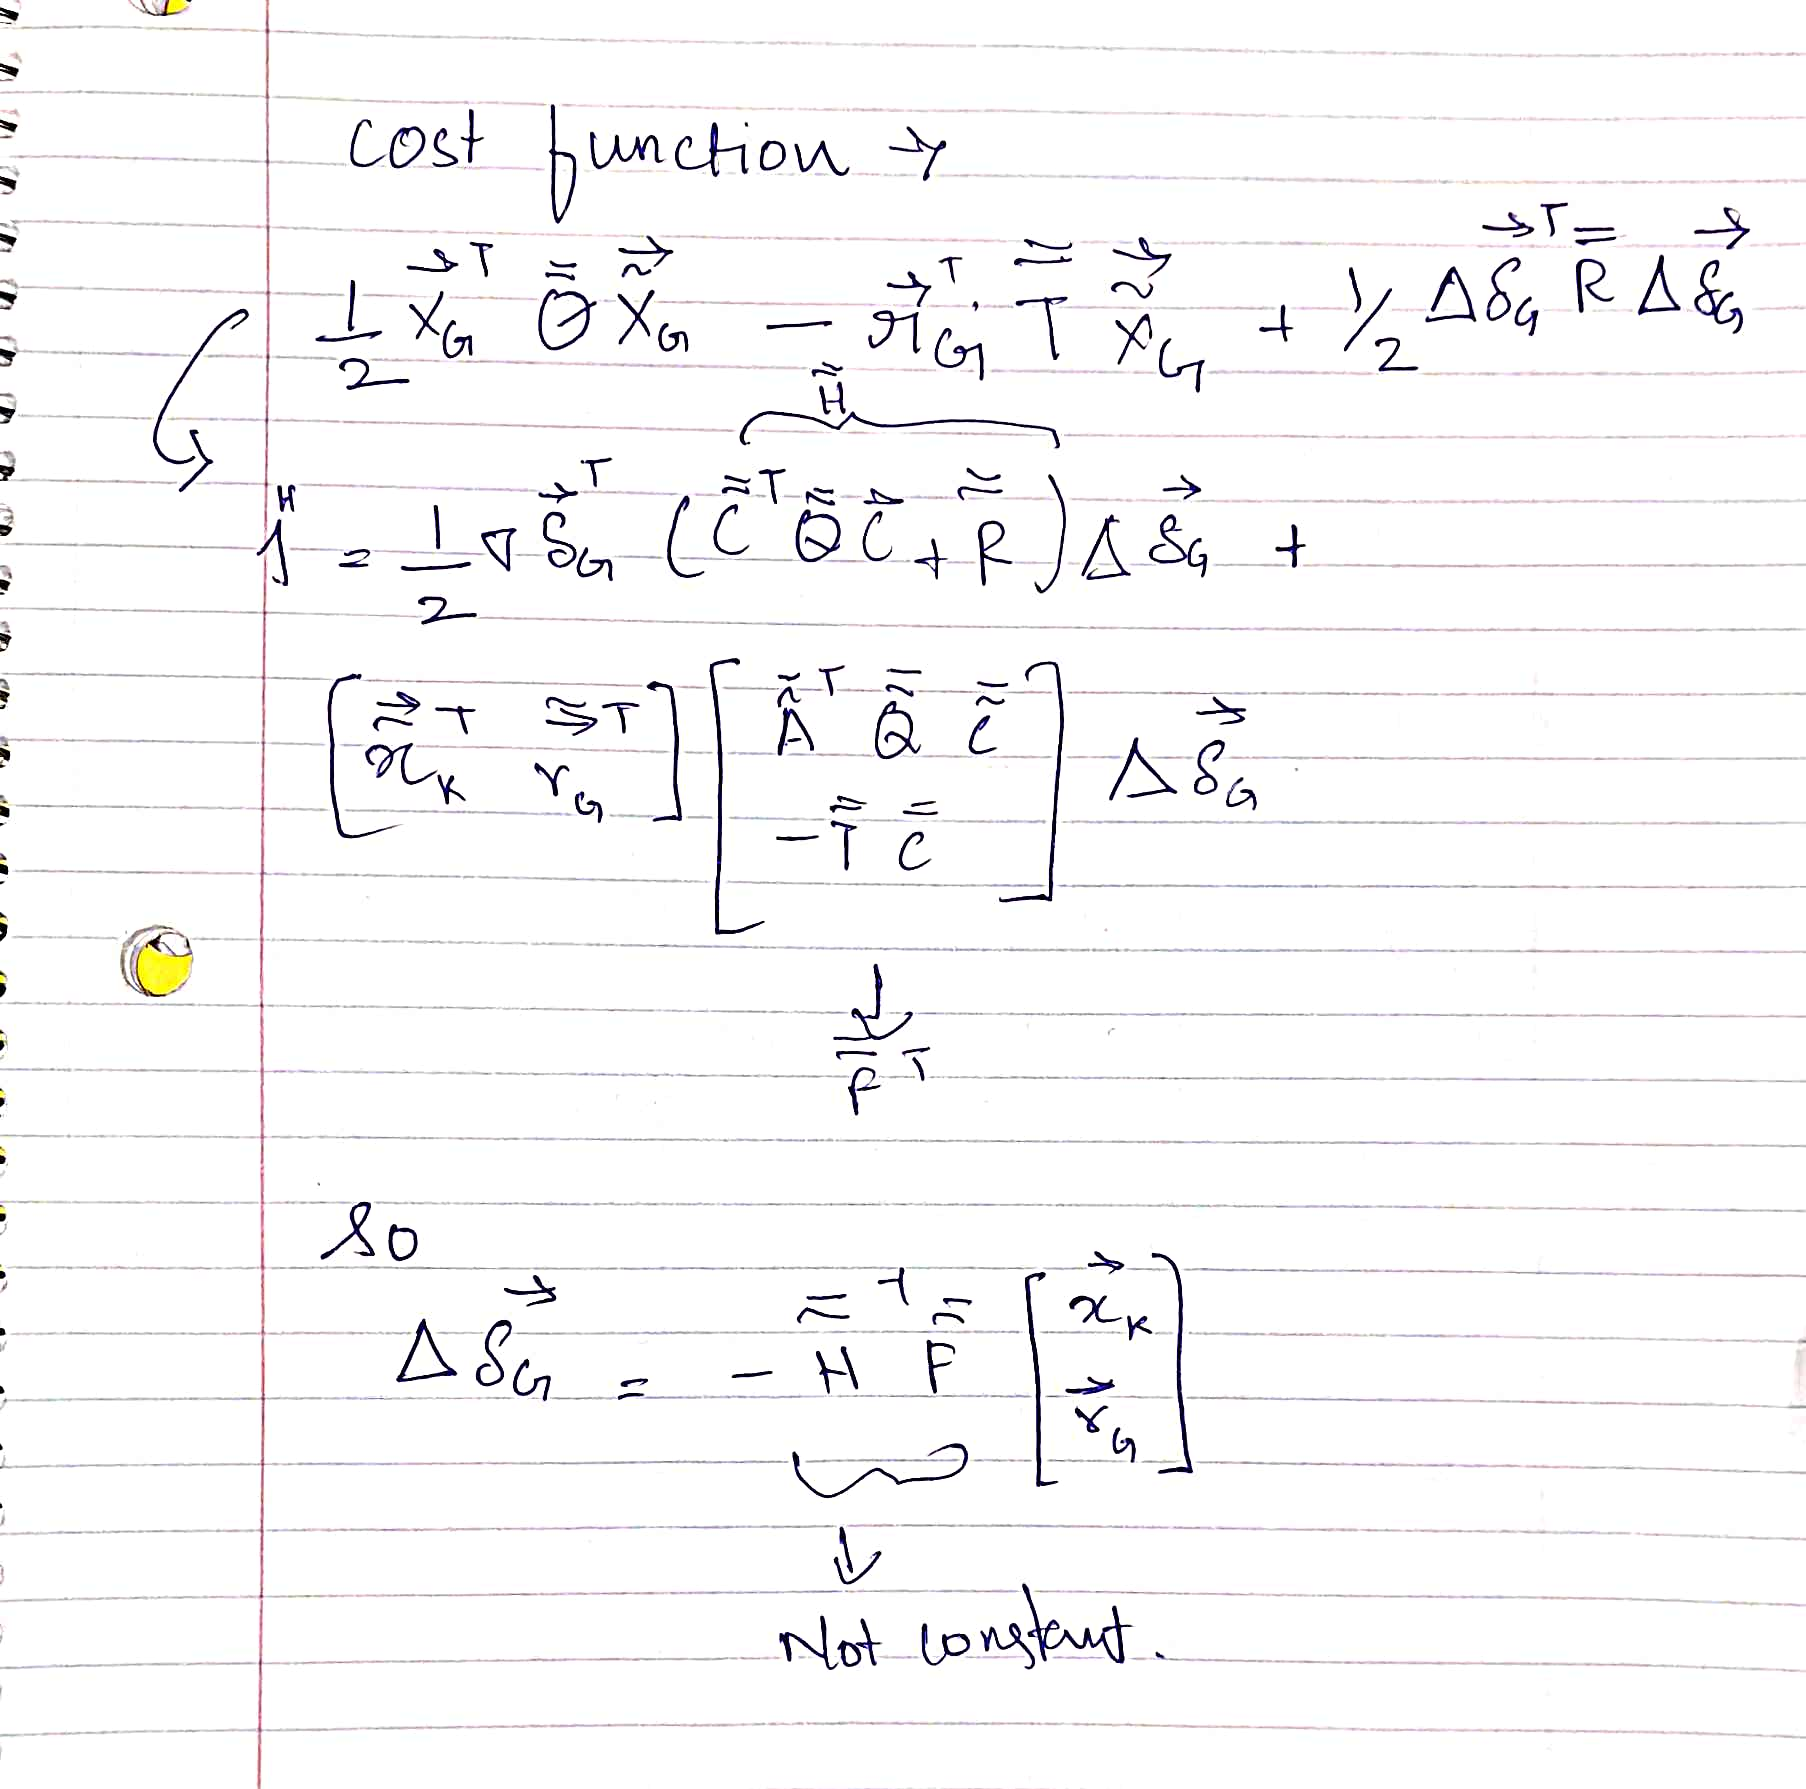 cost function →
1/2 x⃗_G^T Q̿ x̃⃗_G − r⃗_G^T T̿ x̃⃗_G + 1/2 Δδ⃗_G^T R̿ Δδ⃗_G
H̿
J'' = 1/2 ∇δ⃗_G^T (C̿^T Q̿ C̿ + R̿) Δδ⃗_G +
[x̃⃗_K^T r̃⃗_G^T] [Â^T Q̿ C̿
−T̿ C̿] Δδ⃗_G
↓
F̿^T
so
Δδ⃗_G = − H̿^-1 F̿ [x⃗_K
r⃗_G]
↓
Not constant.